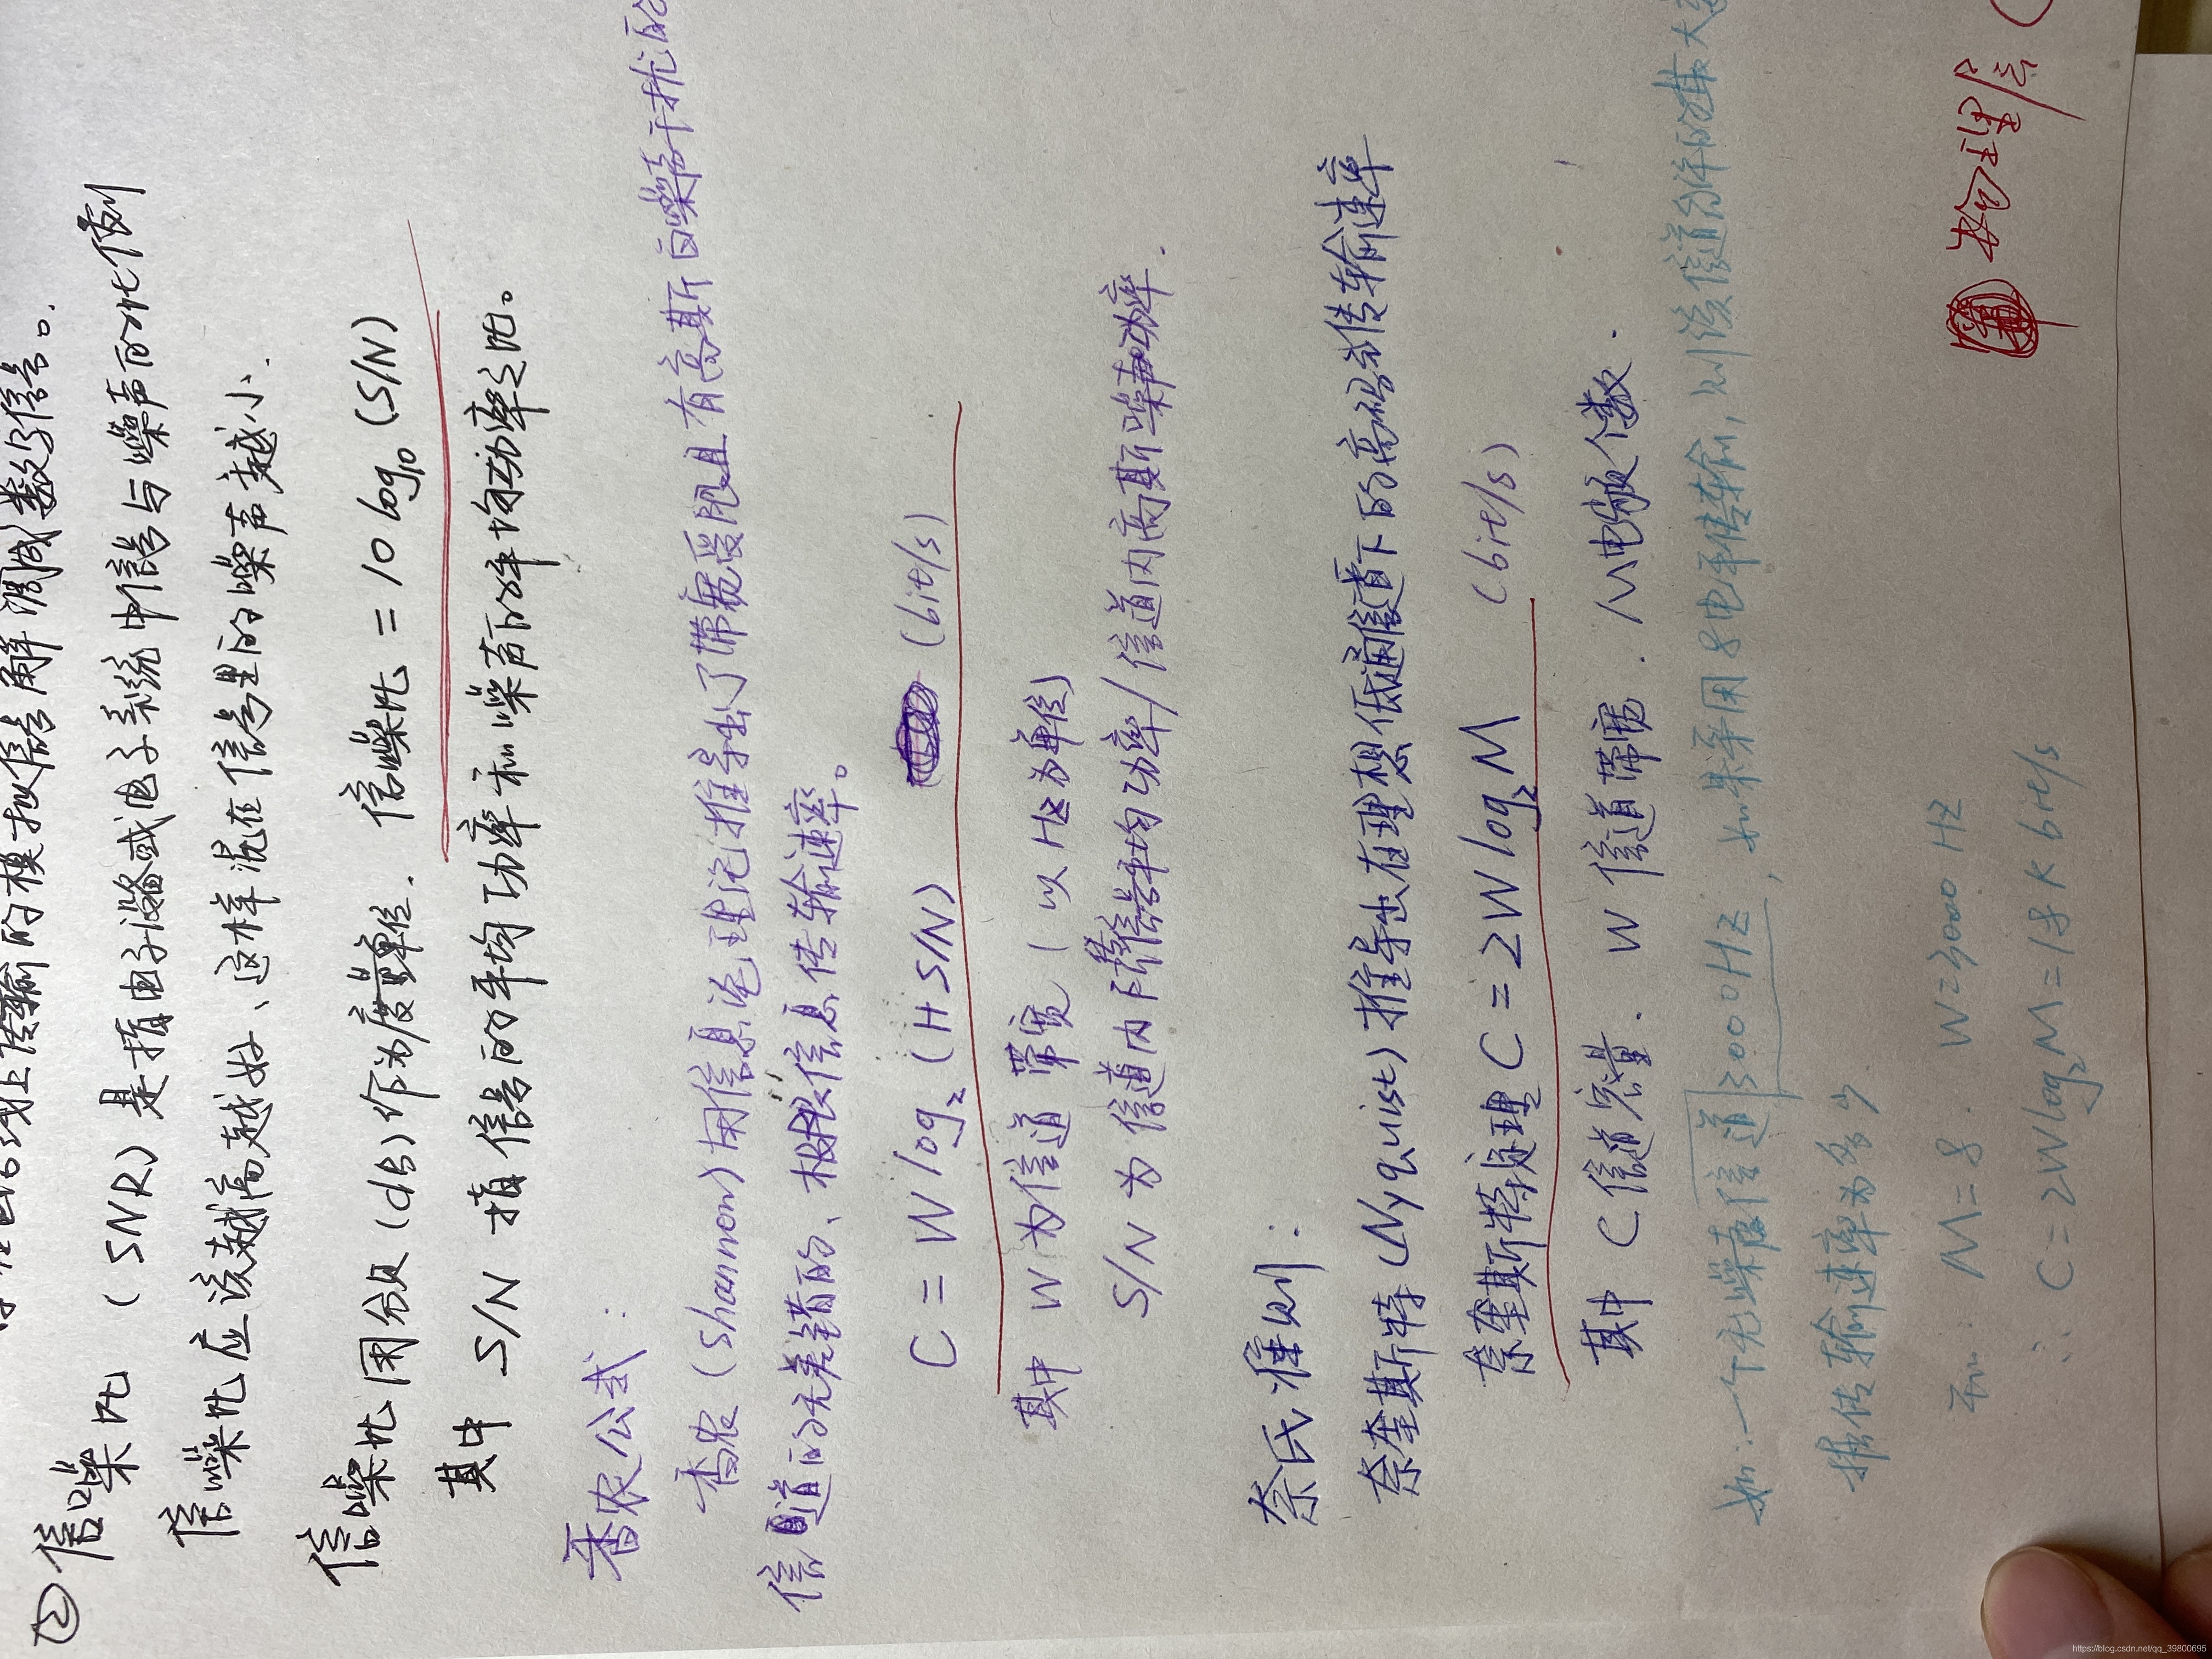 线上传输的模拟信号解调成数字信号。
② 信噪比 (SNR) 是指电子设备或电子系统中信号与噪声的比例
信噪比应该越高越好、这样混在信号里的噪声越小.
信噪比用分贝(dB)作为度量单位. 信噪比 = 10 log₁₀ (S/N)
其中 S/N 指信号的平均功率和噪声的平均功率之比。
香农公式:
香农 (shannon) 用信息论理论推导出了带宽受限且有高斯白噪声干扰的
信道的无差错的、极限信息传输速率。
C = W log₂ (H S/N) (bit/s)
其中 W 为信道 带宽 (以 HZ为单位)
S/N 为 信道内 信号平均功率/信道内高斯噪声功率.
奈氏准则:
奈奎斯特 (Nyquist) 推导出在理想低通信道下的高码或传输速率
奈奎斯特定理 C = 2W log₂M (bit/s)
其中 C 信道容量. W 信道带宽. M 电频个数.
如:一个无噪声信道 3000HZ, 如果采用 8 电平传输, 则该信道允许的最大
据传输速率为多少
M=8. W=3000 HZ
∴ C=2Wlog₂M=18 K bit/s
物理层
https://blog.csdn.net/qq_39800695